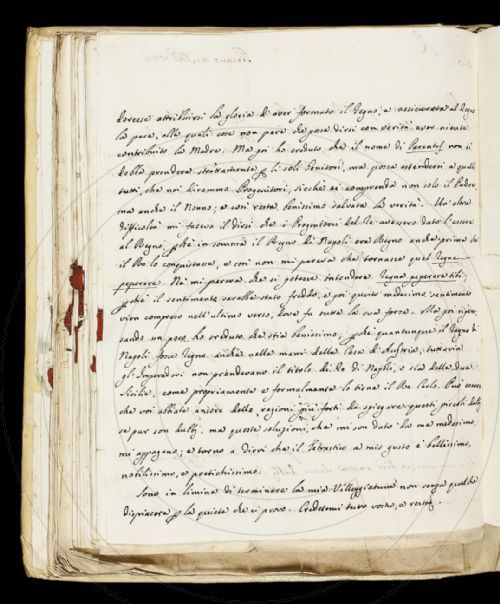 dovesse attribuirsi la gloria di aver formato il Regno, e assicurata al Regno
la pace, alle quali cose non pare che possa dirsi con verità aver niente
contribuito la Madre. Ma poi ho creduto che il nome di Parentes non si
debba prendere strettamente li soli Genitori, ma possa estendersi a quelli
tutti, che noi diremmo Progenitori, sicchè si comprenda non solo il Padre,
ma anche il Nonno; e così resta benissimo salvata la verità. Un'altra
difficoltà mi faceva il dirsi che i Progenitori del Re avessero dato l'essere
al Regno, in somma il Regno di Napoli era Regno anche prima che
il Re lo conquistasse, e così non mi pareva che tornasse quel Regna
peperere. Nè mi pareva che si potesse intendere Regna peperere tibi,
che il sentimento sarebbe stato freddo, e poi questo medesimo sentimento
vien compreso nell'ultimo verso, dove fa tutta la sua forza. Ma poi ripen-
sando un poco, ho creduto che stia benissimo, quantunque il Regno di
Napoli fosse Regno anche nelle mani della Casa d'Austria, tuttavia
gl'Imperadori non prendevano il titolo di Re di Napoli, o sia delle due
Sicilie, come propriamente e formalmente lo tiene il Re Carlo. Può essere
che voi abbiate ancora delle ragioni più forti da spiegare questi piccoli dubbj,
se pur son dubbj, ma queste soluzioni, che mi son dato da me medesimo,
mi appagano; e torno a dirvi che il Tetrastico a mio gusto è bellissimo,
nobilissimo, e poetichissimo.
Sono in limine di terminare la mia Villeggiatura non senza qualche
dispiacere la quiete che ci provo. Credetemi tutto vostro, e resto